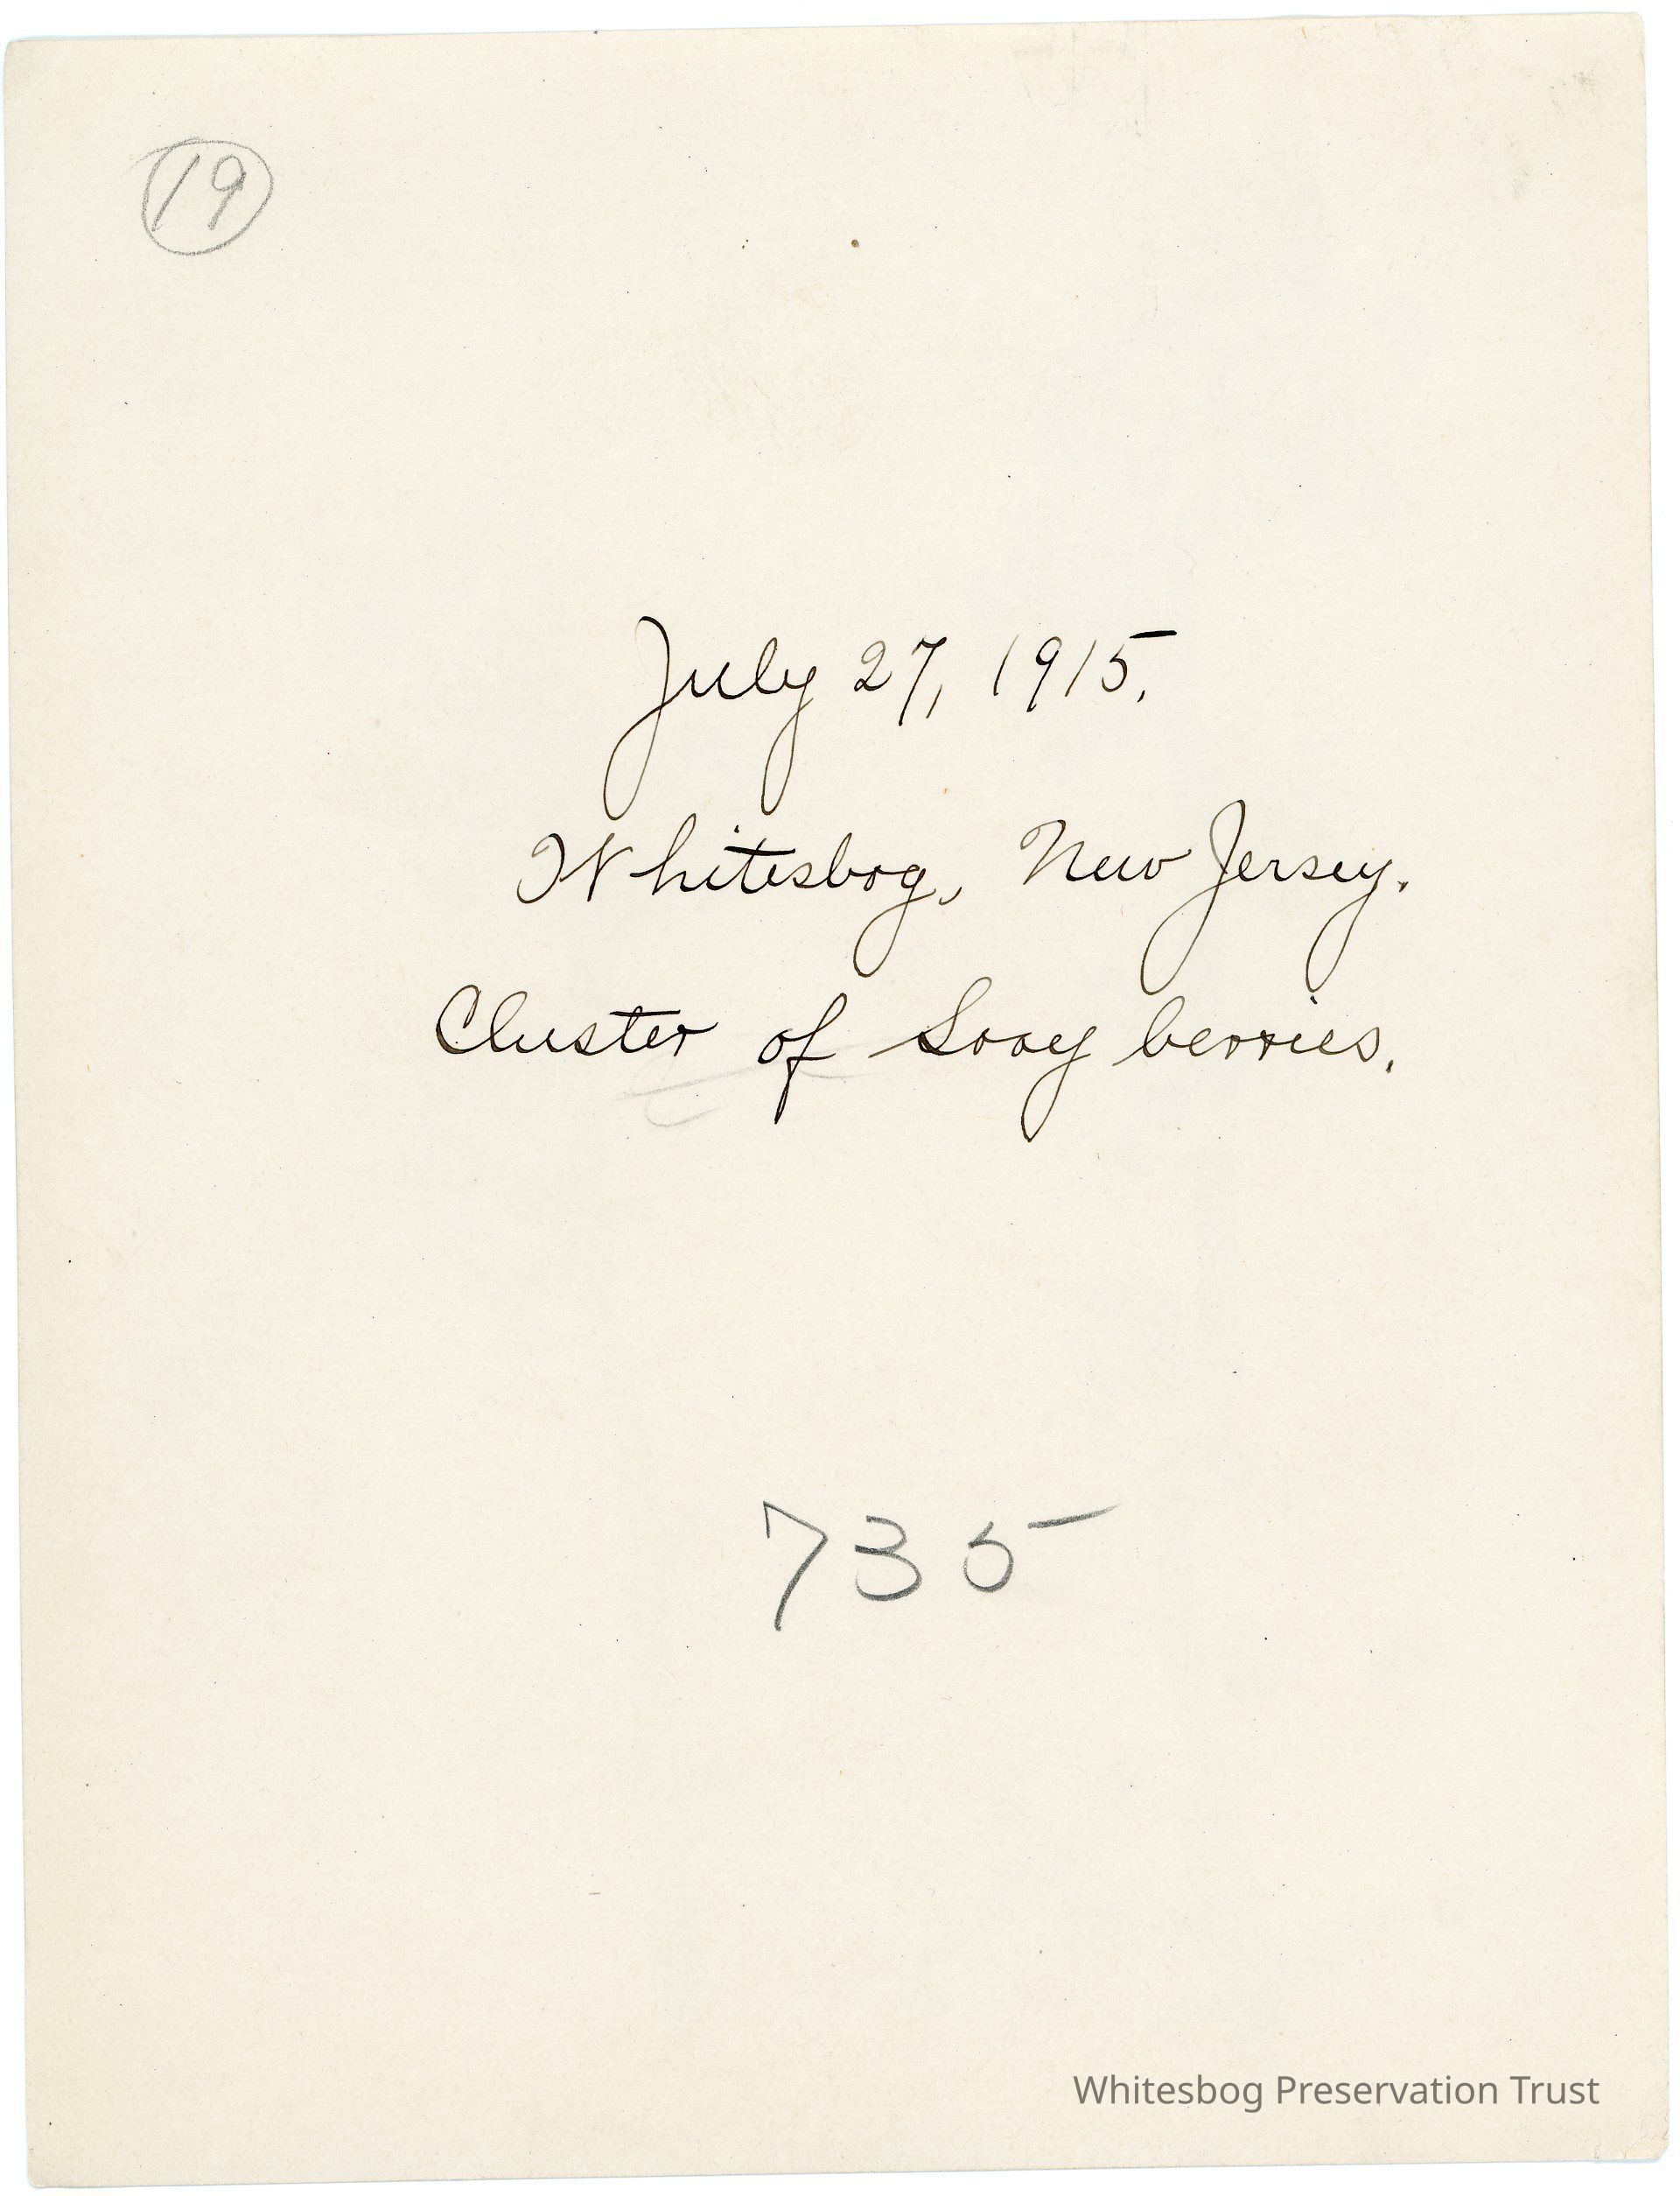 19
July 27, 1915.
Whitesbog, New Jersey.
Cluster of Sooy berries.
735
Whitesbog Preservation Trust